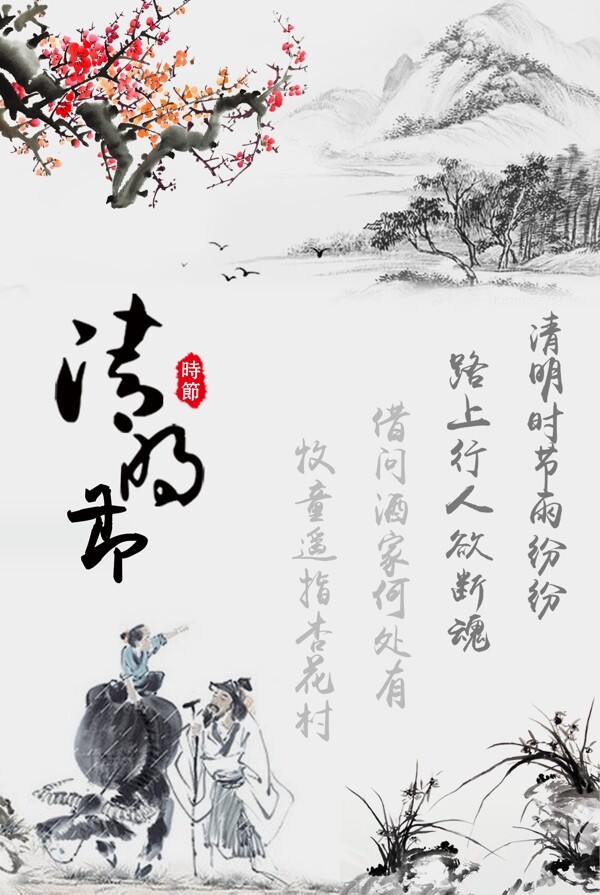 清明时节雨纷纷
路上行人欲断魂
借问酒家何处有
牧童遥指杏花村
清明节
時節